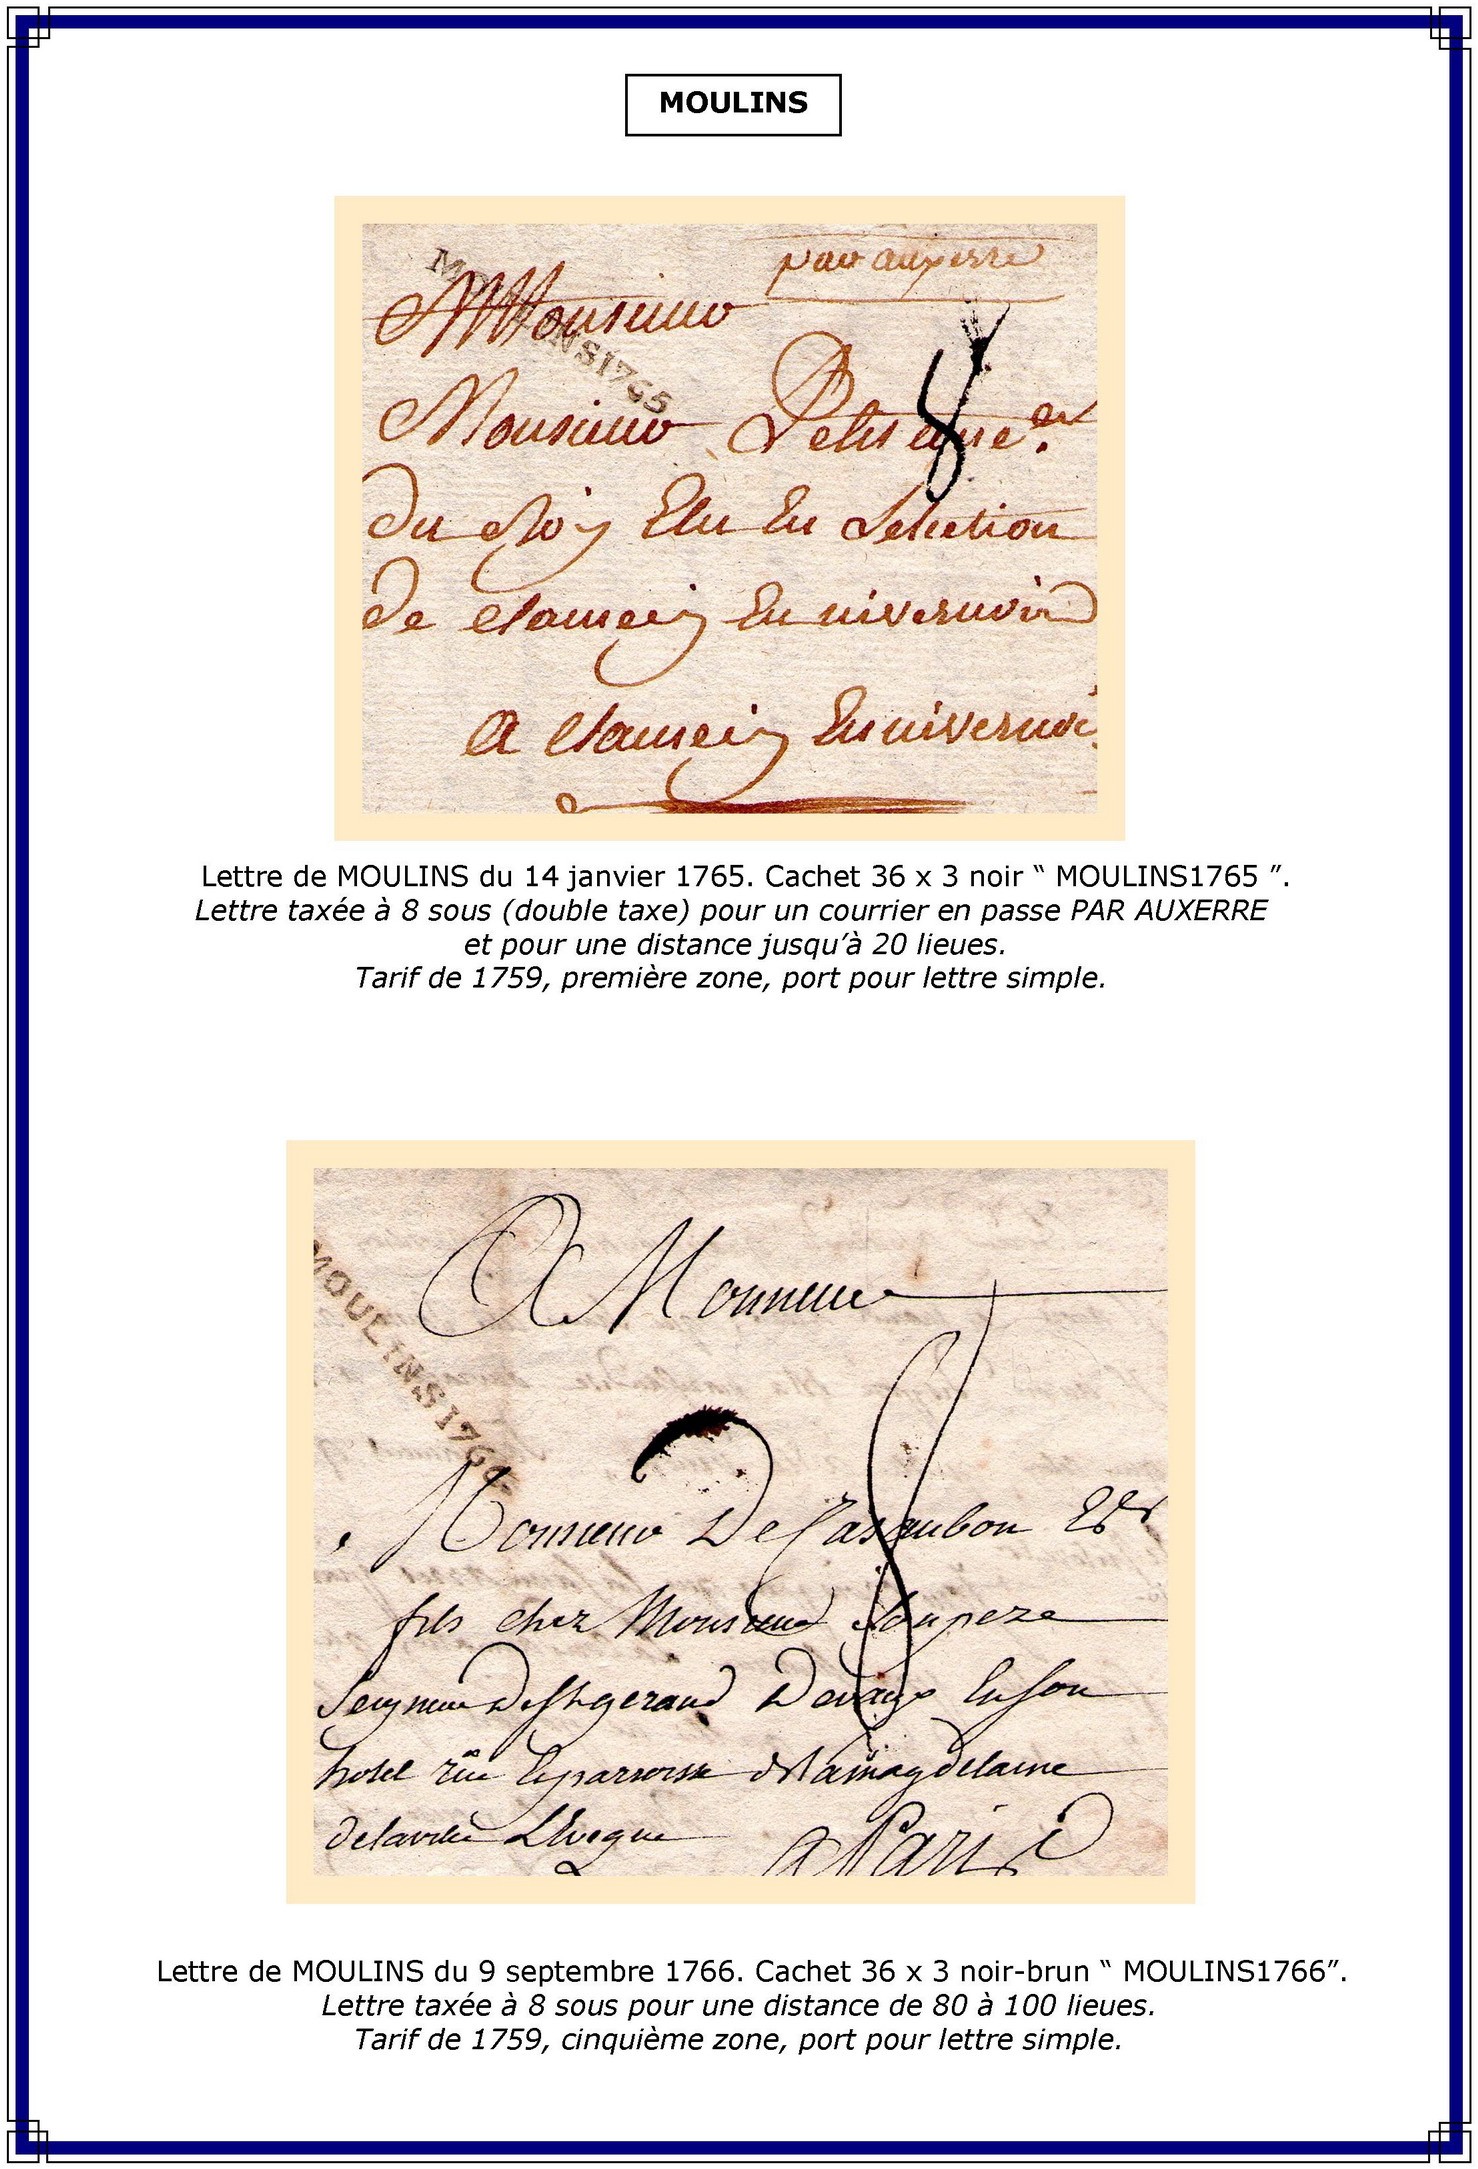 MOULINS
par auxerre
MOULINS1765
A Monsieur
Monsieur
du Roy Elu En Lelection
De Clamecy En nivernois
A Clamecy En niverno
8
Lettre de MOULINS du 14 janvier 1765. Cachet 36 x 3 noir “ MOULINS1765 ”.
Lettre taxée à 8 sous (double taxe) pour un courrier en passe PAR AUXERRE
et pour une distance jusqu’à 20 lieues.
Tarif de 1759, première zone, port pour lettre simple.
MOULINS1766
A Monsieur
8
Monsieur De Casaubon
fils chez Monsieur
De St gerand Devaux En son
hotel rüe et paroisse de la magdelaine
de la ville L'Eveque A Paris
Lettre de MOULINS du 9 septembre 1766. Cachet 36 x 3 noir-brun “ MOULINS1766”.
Lettre taxée à 8 sous pour une distance de 80 à 100 lieues.
Tarif de 1759, cinquième zone, port pour lettre simple.